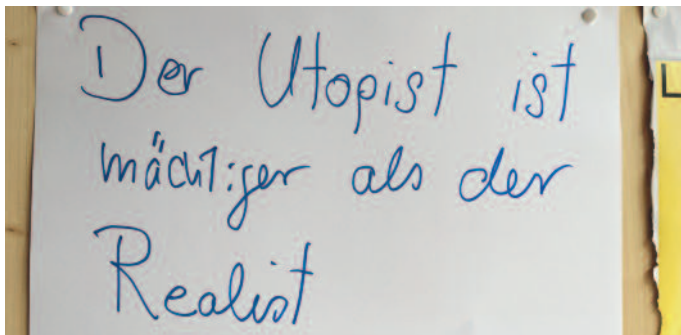 Der Utopist ist
mächtiger als der
Realist